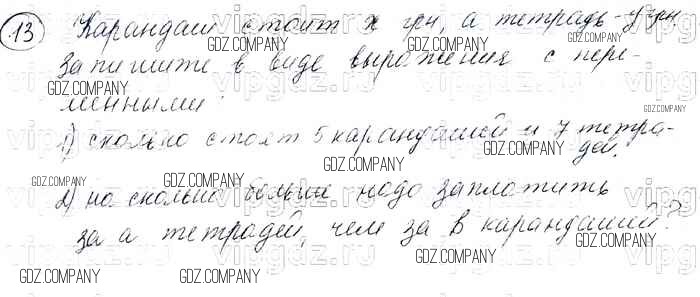 13 Карандаш стоит x грн, а тетрадь - y грн
Запишите в виде выражения с пере-
менными:
1) сколько стоят 5 карандашей и 7 тетра-
дей.
2) на сколько больше надо заплатить
за a тетрадей, чем за b карандашей?
GDZ.COMPANY
GDZ.COMPANY
GDZ.COMPANY
GDZ.COMPANY
GDZ.COMPANY
GDZ.COMPANY
GDZ.COMPANY
GDZ.COMPANY
GDZ.COMPANY
GDZ.COMPANY
GDZ.COMPANY
GDZ.COMPANY
GDZ.COMPANY
vipgdz.ru